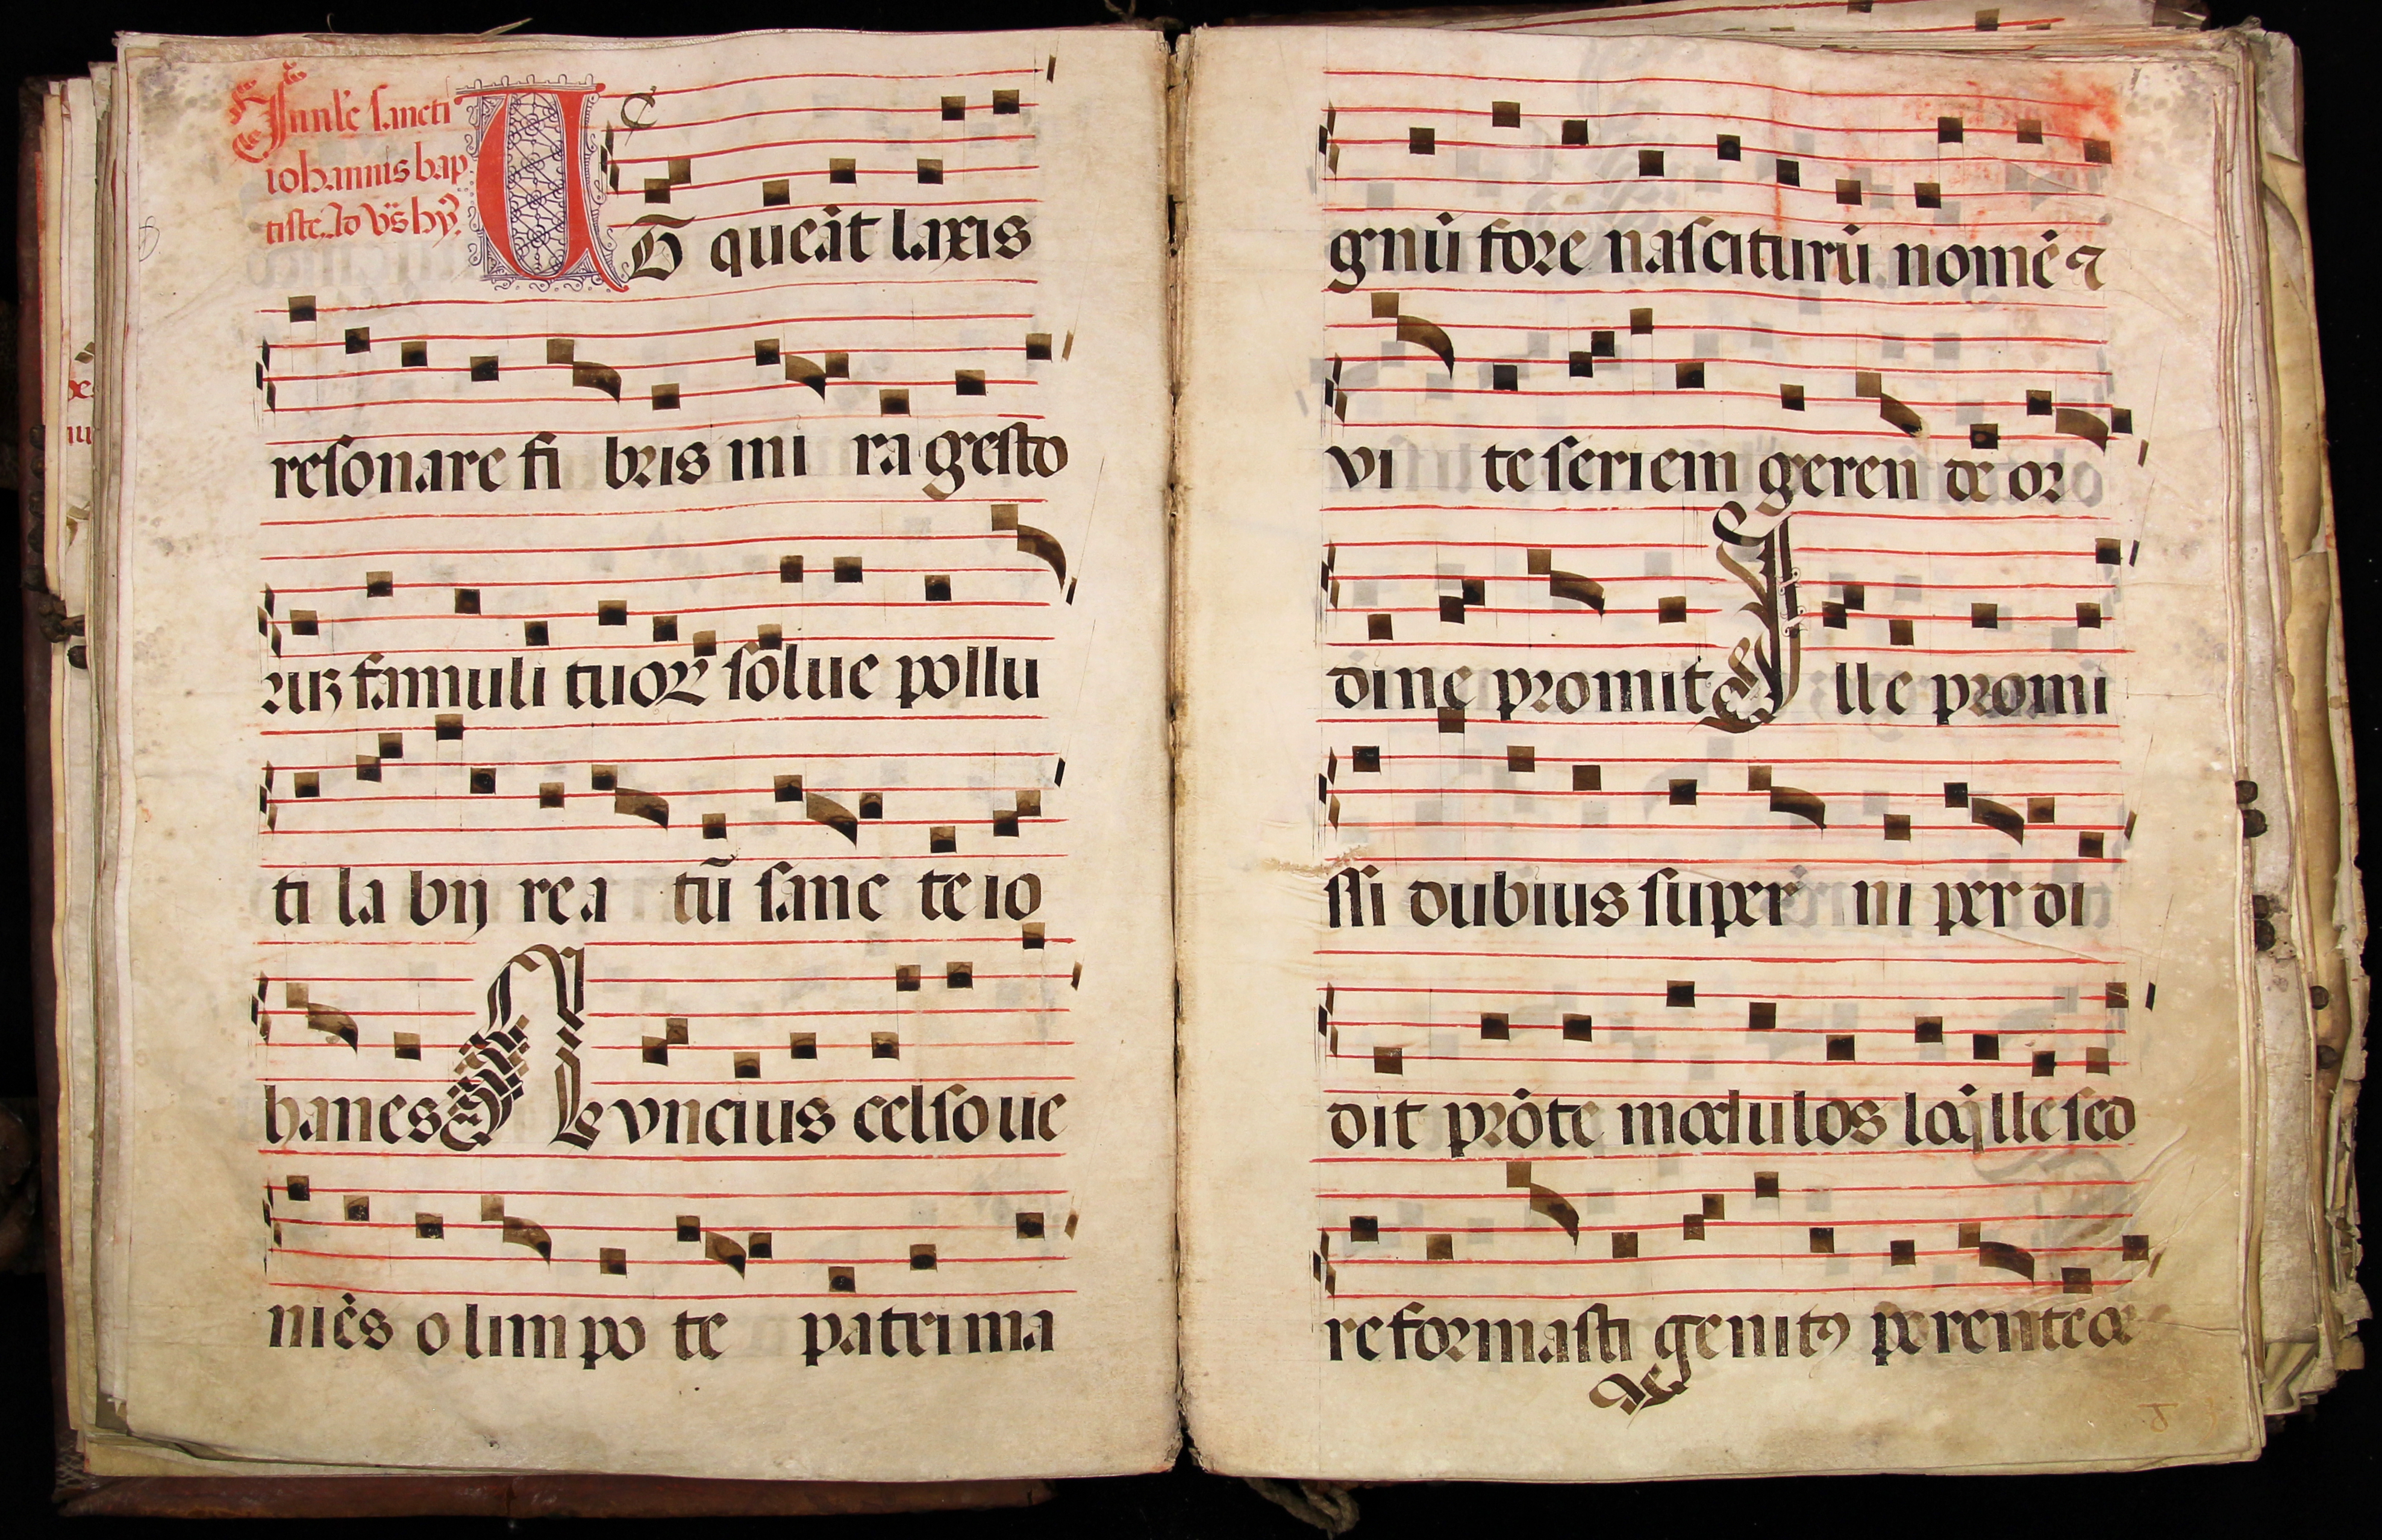 In nle sancti
iohannis bap
tiste. Ad vs̄ hȳ.
UT queāt laxis
resonare fi bris mi ra gesto
ruʒ famuli tuoꝝ solue pollu
ti la bij re a tū sanc te io
hanes N vncius celso ue
niēs olimpo te patri ma
gnū fore nasciturū nomē ⁊
vi te seriem geren de or
dine promit I lle promi
ssi dubius super ni per di
dit prōte modulos loq̄lle sed
reformasti genitꝯ perentce